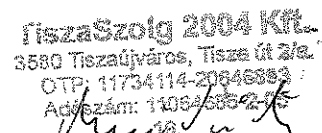 TiszaSzolg 2004 Kft.
3580 Tiszaújváros, Tisza út 2/a.
OTP: 11734114-20646889
Adószám: